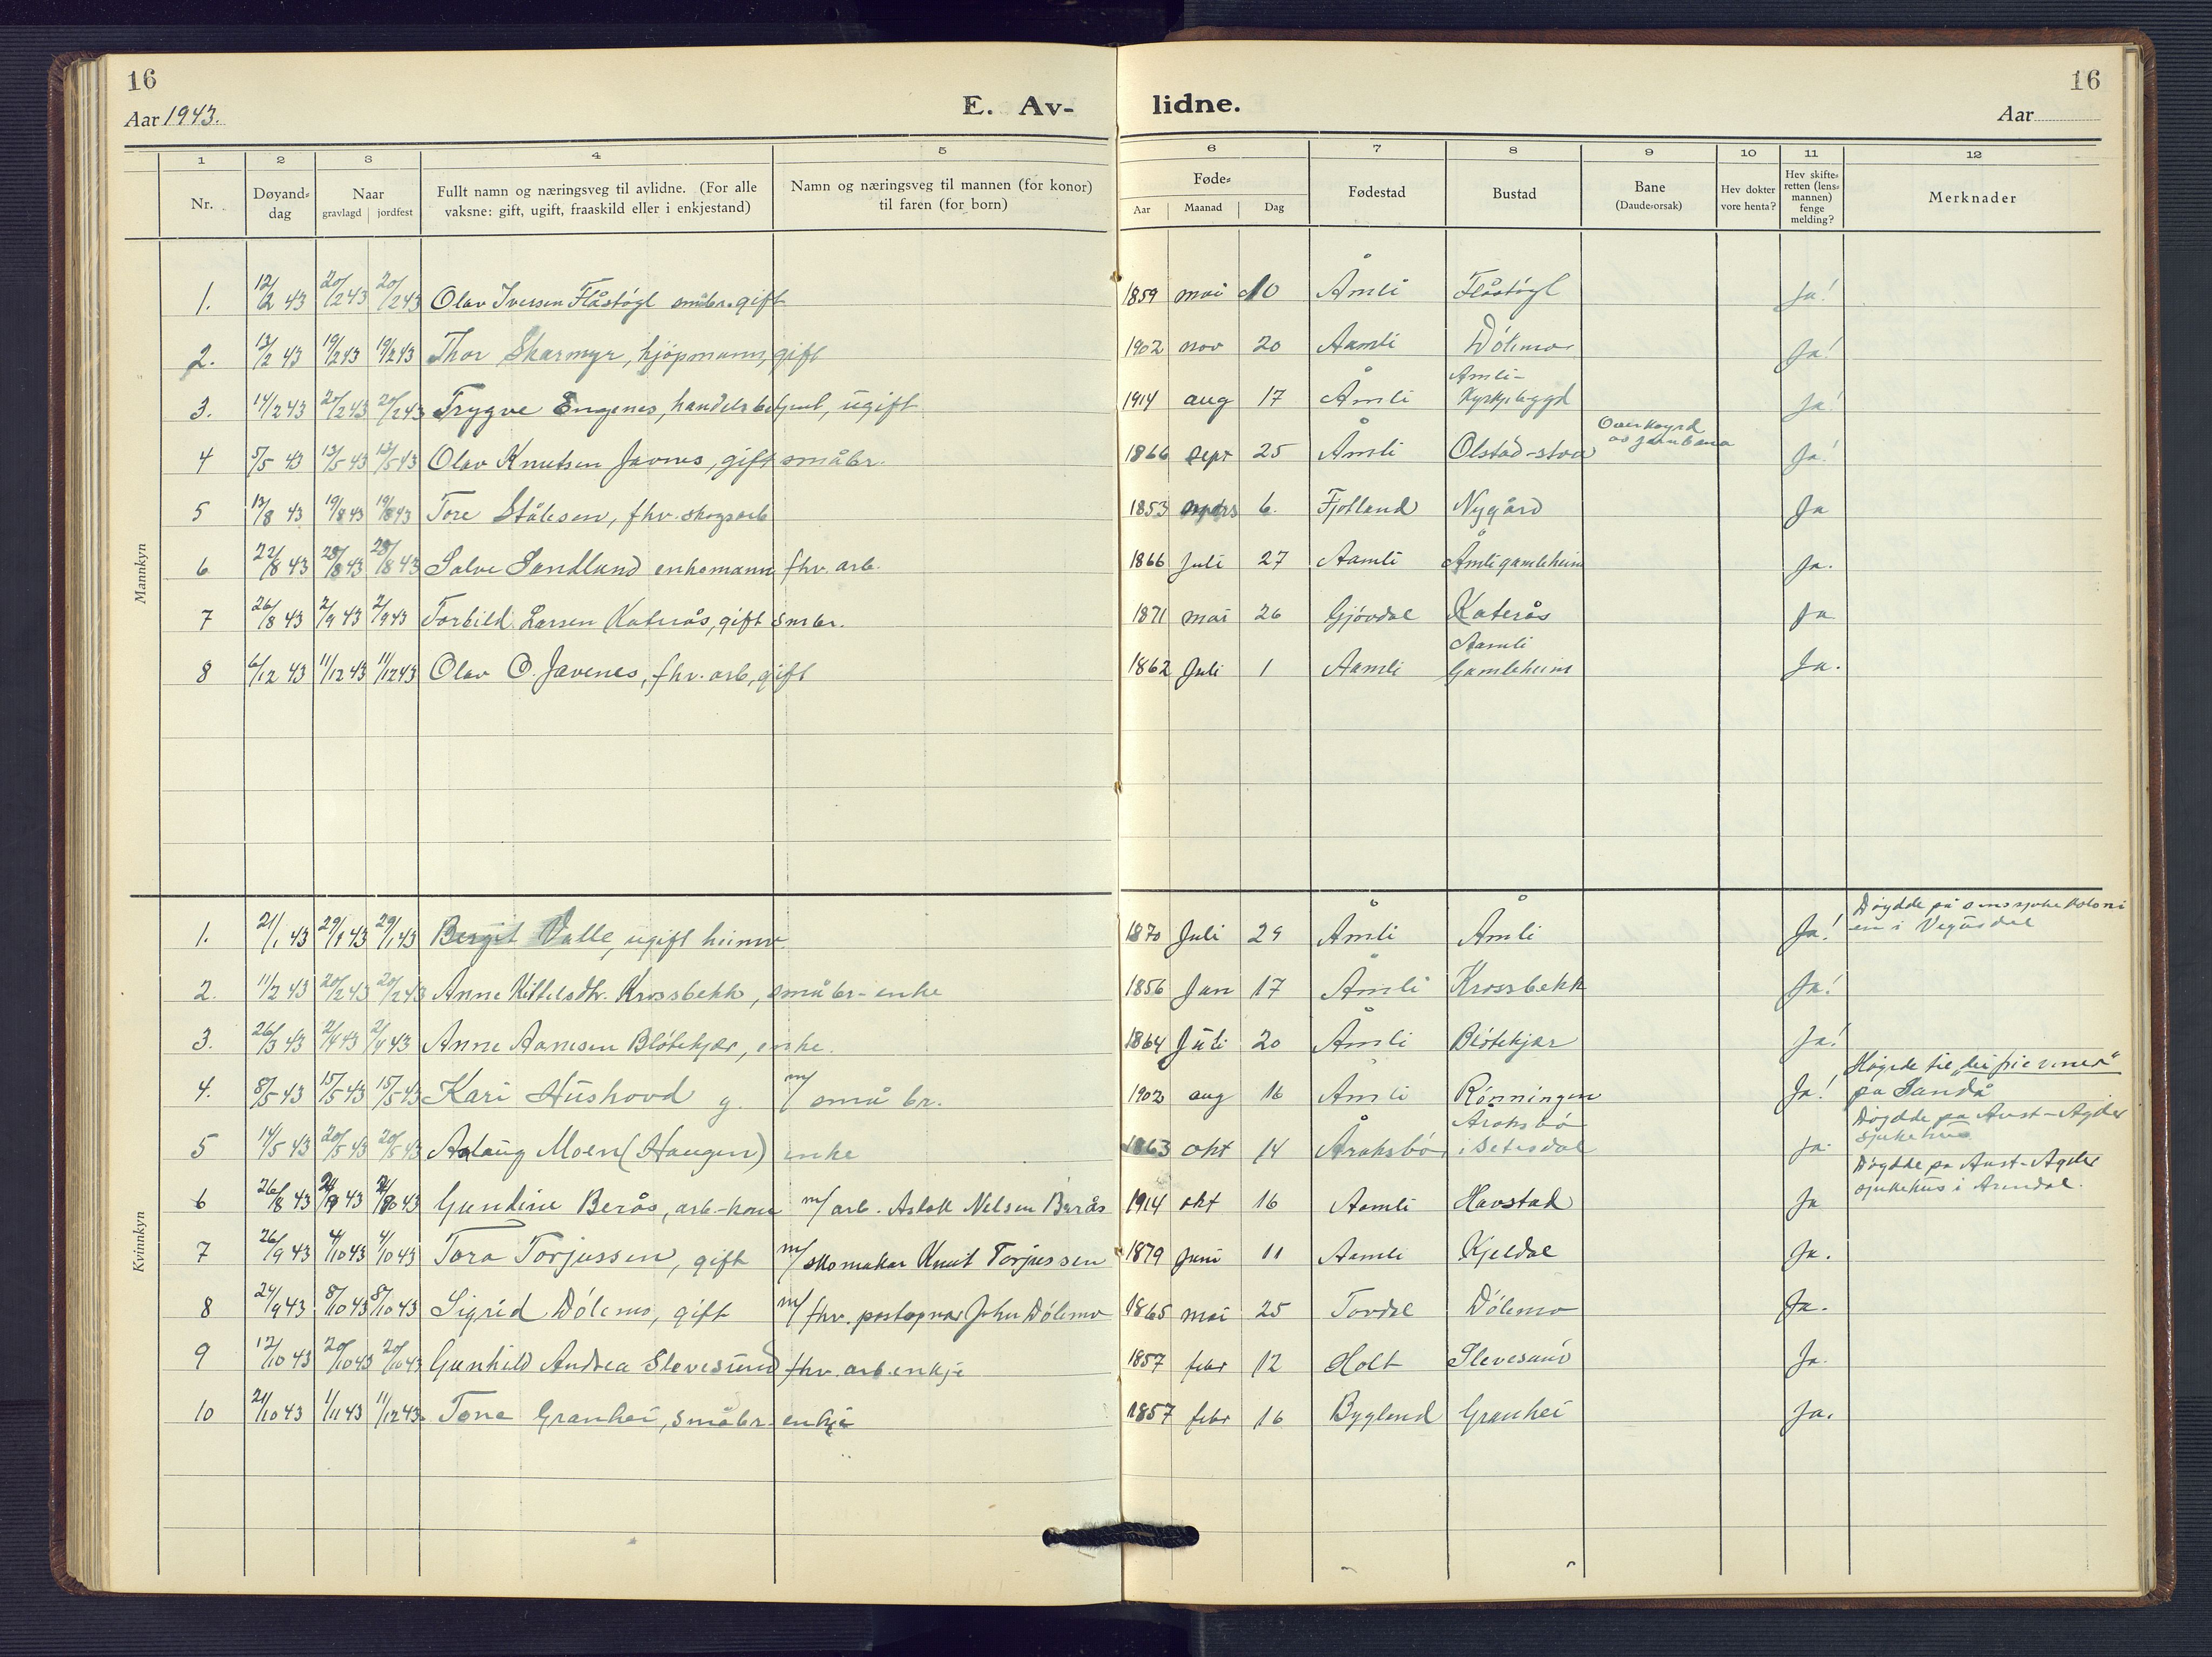 16
Aar 1943.
E. Av-
1 2 3 4 5
Nr. Døyand-dag Naar gravlagd jordfest Fullt namn og næringsveg til avlidne. (For alle vaksne: gift, ugift, fraaskild eller i enkjestand) Namn og næringsveg til mannen (for konor) til faren (for born)
16
lidne.
Aar
6 7 8 9 10 11 12
Føde- Aar Maanad Dag Fødestad Bustad Bane (Daude-orsak) Hev dokter vore henta? Hev skifte-retten (lens-mannen) fenge melding? Merknader
Mannkyn
1. 12/2 43 20/2 43 20/2 43 Olav Iversen Flåstøyl småbr. gift 1859 mai 10 Åmli Flåstøyl Ja!
2. 13/2 43 19/2 43 19/2 43 Thor Skarmyr, kjøpmann, gift 1902 nov 20 Aamli Dölemo Ja!
3. 14/2 43 20/2 43 20/2 43 Trygve Engenes, handelsbetjent, ugift 1914 aug 17 Åmli Åmli-Kyrkjebygd Ja!
4 5/5 43 13/5 43 13/5 43 Olav Knutsen Javnes, gift småbr. 1866 sept 25 Åmli Olstad-stoa Overkøyrd av jarnbana Ja!
5 13/8 43 19/8 43 19/8 43 Tore Ståhlesen, fhv. skogsarb 1853 mars 6. Fjotland Nygård Ja
6 22/8 43 28/8 43 28/8 43 Salve Sandlund enkemann fhv. arb. 1866 Juli 27 Aamli Åmli gamleheim Ja.
7 26/8 43 2/9 43 2/9 43 Torbild Larsen Katerås, gift smbr. 1871 mai 26 Gjövdal Katerås Ja
8 6/12 43 11/12 43 11/12 43 Olav O. Javenes, fhv. arb, gift 1862 Juli 1 Aamli Aamli Gamleheim Ja.
Kvinnkyn
1. 21/1 43 29/1 43 29/1 43 Bergit Valle, ugift heimv. 1870 Juli 29 Åmli Åmli Ja! Døydde på sinnssjuke koloni en i Vegusdal
2. 11/2 43 20/2 43 20/2 43 Anne Kittelsdtr. Krossbekk, småbr-enke 1856 Jan 17 Åmli Krossbekk Ja!
3. 26/3 43 2/4 43 2/4 43 Anne Aanesen Blötekjær, enke. 1864 Juli 20 Åmli Blötekjær Ja!
4. 8/5 43 15/5 43 15/5 43 Kari Hushovd g. m/ småbr. 1902 aug 16 Åmli Rönningen Ja! Høyrde til "dei frie vener" på Sandå
5 14/5 43 20/5 43 20/5 43 Aslaug Moen (Haugen) enke 1863 okt 14 Åraksbö Åraksbö i Setesdal Ja. Døydde på Aust-Agder sjukehus
6 26/8 43 43 43 Gundine Berås, arb-kone m/ arb. Aslak Nelsen Berås 1914 okt 16 Aamli Havstad Ja Døydde på Aust-Agder sjukehus i Arendal.
7 26/9 43 4/10 43 4/10 43 Tora Torjussen, gift m/ skomakar Knut Torjussen 1879 Juni 11 Aamli Kjeldal Ja.
8 24/9 43 8/10 43 8/10 43 Sigrid Dölemo, gift m/ fhv. postopnar John Dölemo 1865 mai 25 Tovdal Dölemo Ja.
9 12/10 43 20/10 43 20/10 43 Gunhild Andrea Slevesund fhv. arb. enkje 1857 febr 12 Holt Slevesund Ja.
10 21/10 43 1/11 43 11/12 43. Tone Granhei, småbr. enkje 1857 febr 16 Bygland Granhei Ja.